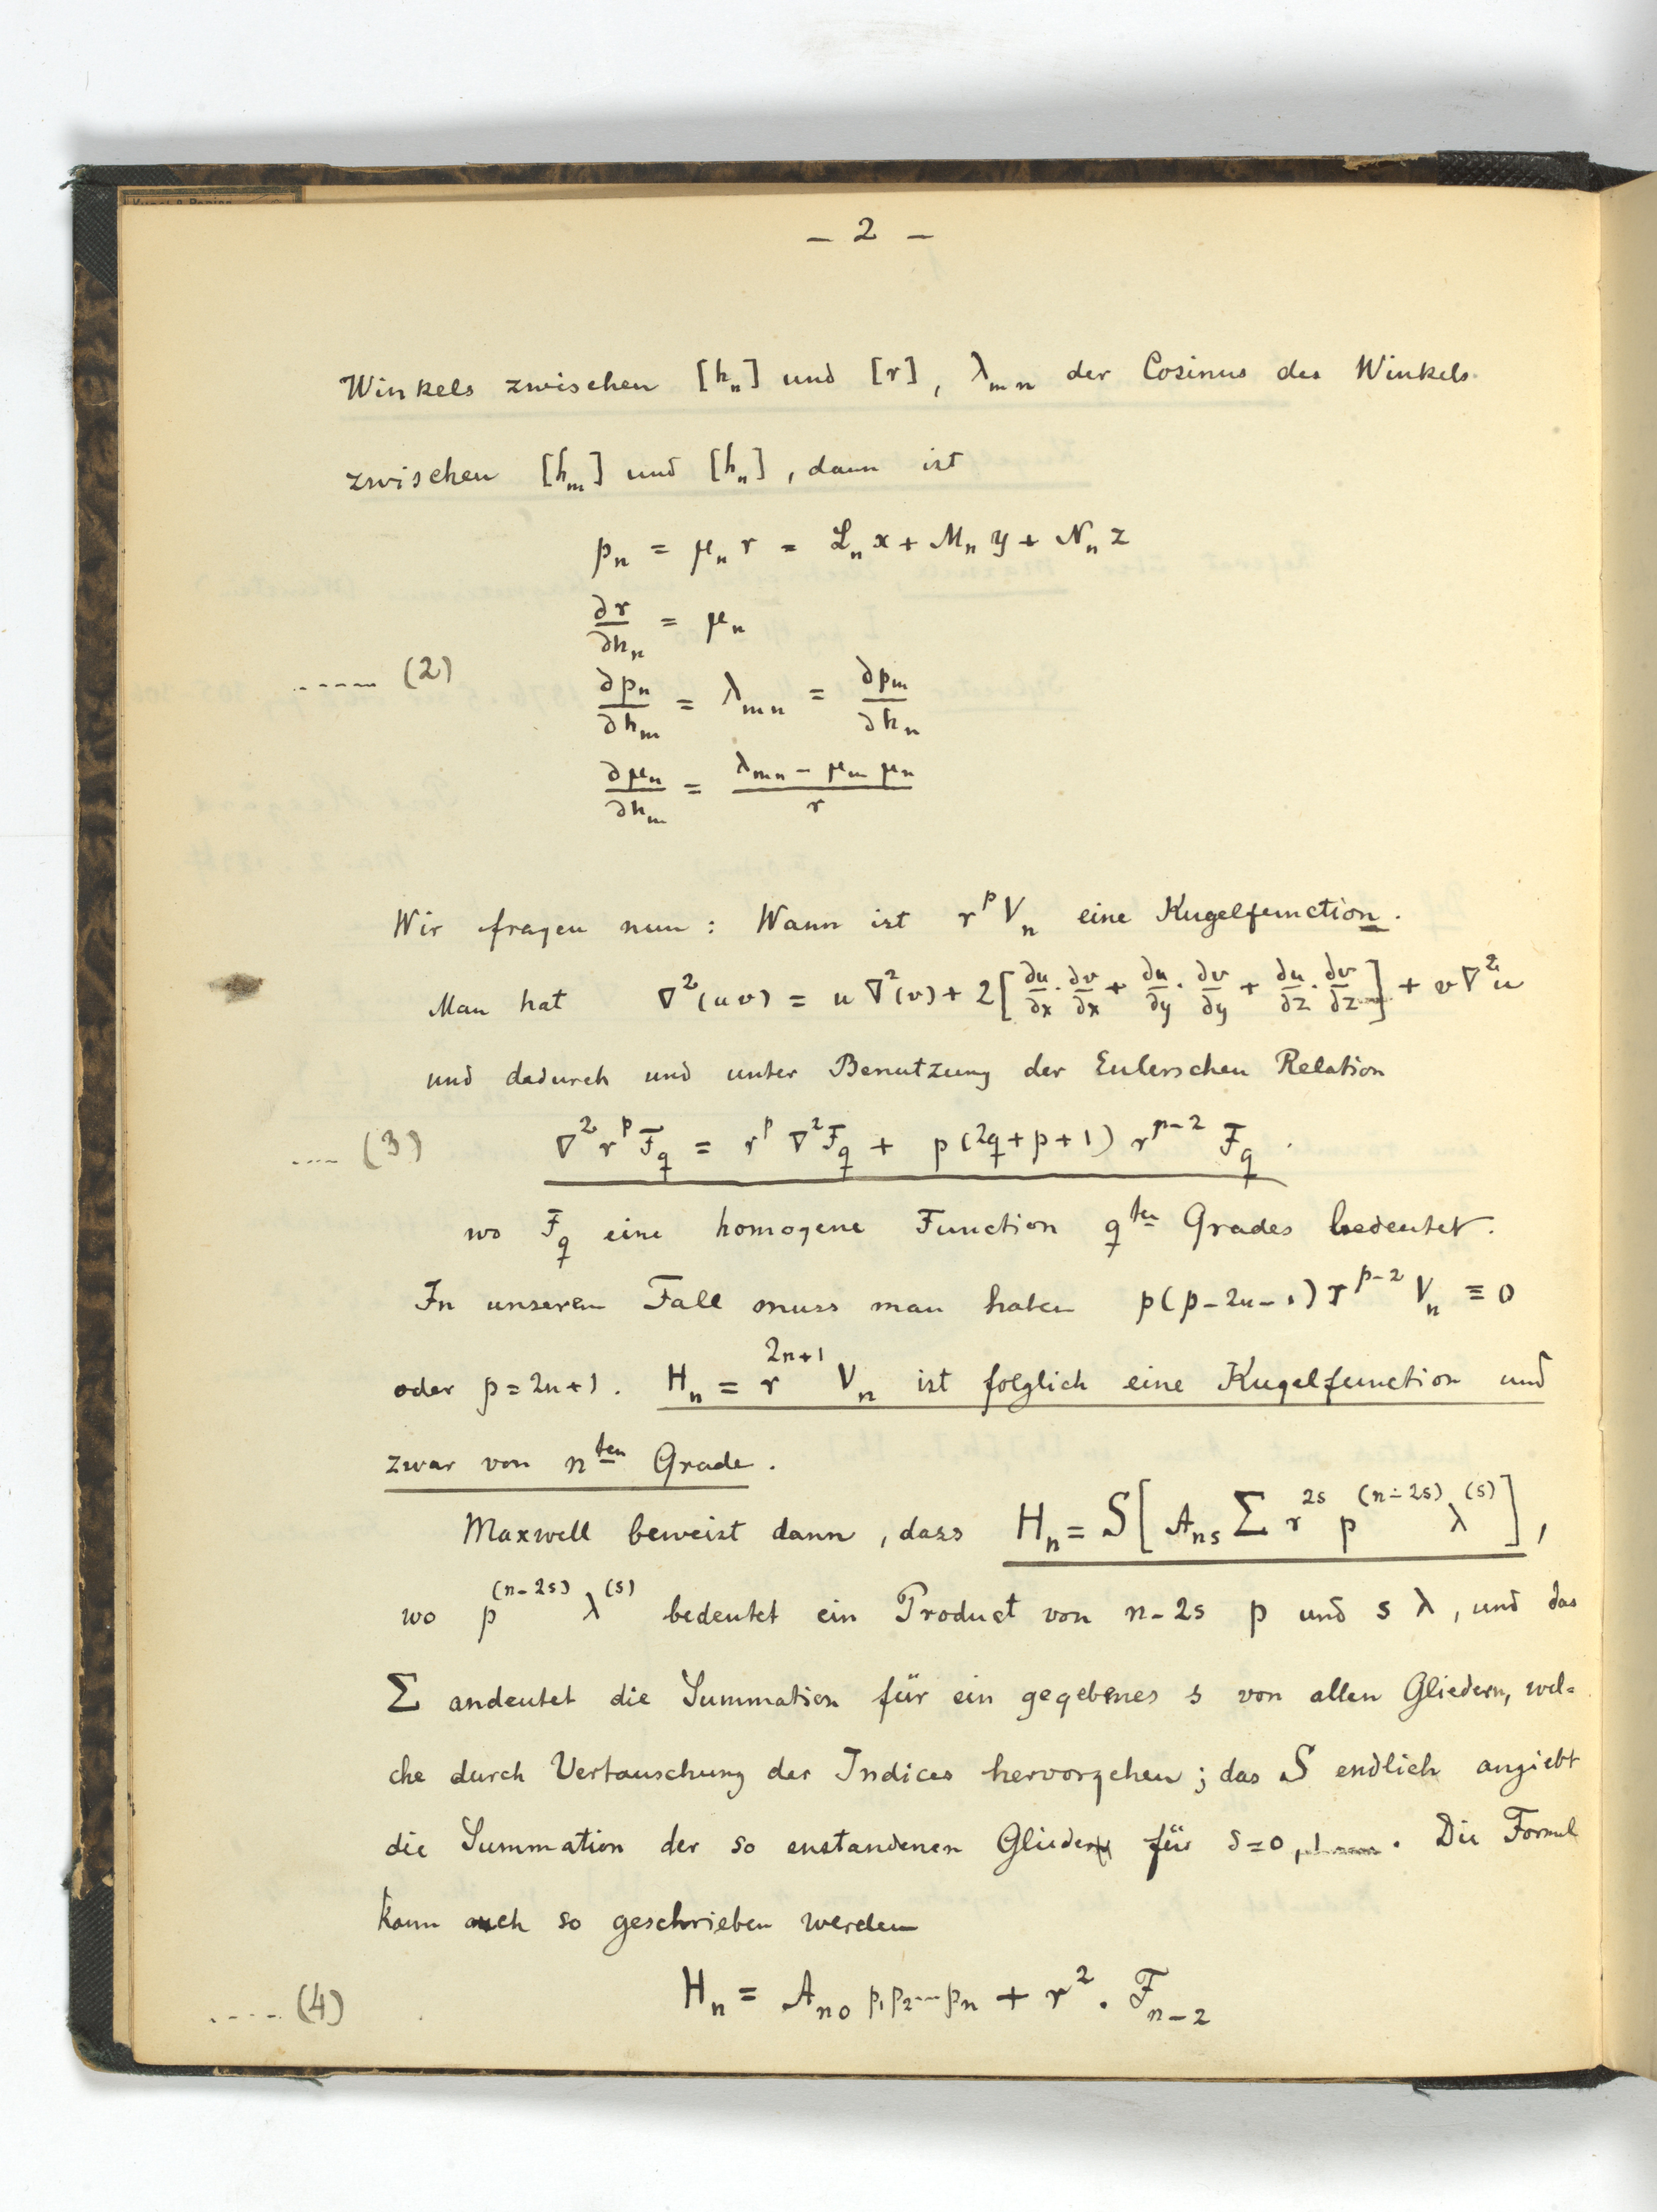 – 2 –
Winkels zwischen [hₙ] und [r], λₘₙ der Cosinus des Winkels
zwischen [hₘ] und [hₙ], dann ist
pₙ = μₙ r = ℒₙ x + Mₙ y + Nₙ z
∂r/∂hₙ = μₙ
..... (2) ∂pₙ/∂hₘ = λₘₙ = ∂pₘ/∂hₙ
∂μₙ/∂hₘ = (λₘₙ – μₘ μₙ)/r
Wir fragen nun: Wann ist r^p Vₙ eine Kugelfunction.
Man hat ∇²(uv) = u∇²(v) + 2[∂u/∂x · ∂v/∂x + ∂u/∂y · ∂v/∂y + ∂u/∂z · ∂v/∂z] + v∇²u
und dadurch und unter Benutzung der Eulerschen Relation
.... (3) ∇² r^p F_q = r^p ∇² F_q + p(2q+p+1) r^{p-2} F_q.
wo F_q eine homogene Function q^ten Grades bedeutet.
In unserem Fall muss man haben p(p–2n–1) r^{p-2} Vₙ ≡ 0
oder p = 2n+1. Hₙ = r^{2n+1} Vₙ ist folglich eine Kugelfunction und
zwar von n^ten Grade.
Maxwell beweist dann, dass Hₙ = S[A_{ns} Σ r^{2s} p^{(n-2s)} λ^{(s)}],
wo p^{(n-2s)} λ^{(s)} bedeutet ein Product von n-2s p und s λ, und das
Σ andeutet die Summation für ein gegebenes s von allen Gliedern, wel=
che durch Vertauschung der Indices hervorgehen; das S endlich angiebt
die Summation der so enstandenen Glieder für s=0, 1 .... . Die Formel
kann auch so geschrieben werden
.... (4) Hₙ = A_{n0} p₁p₂...pₙ + r² . F_{n-2}